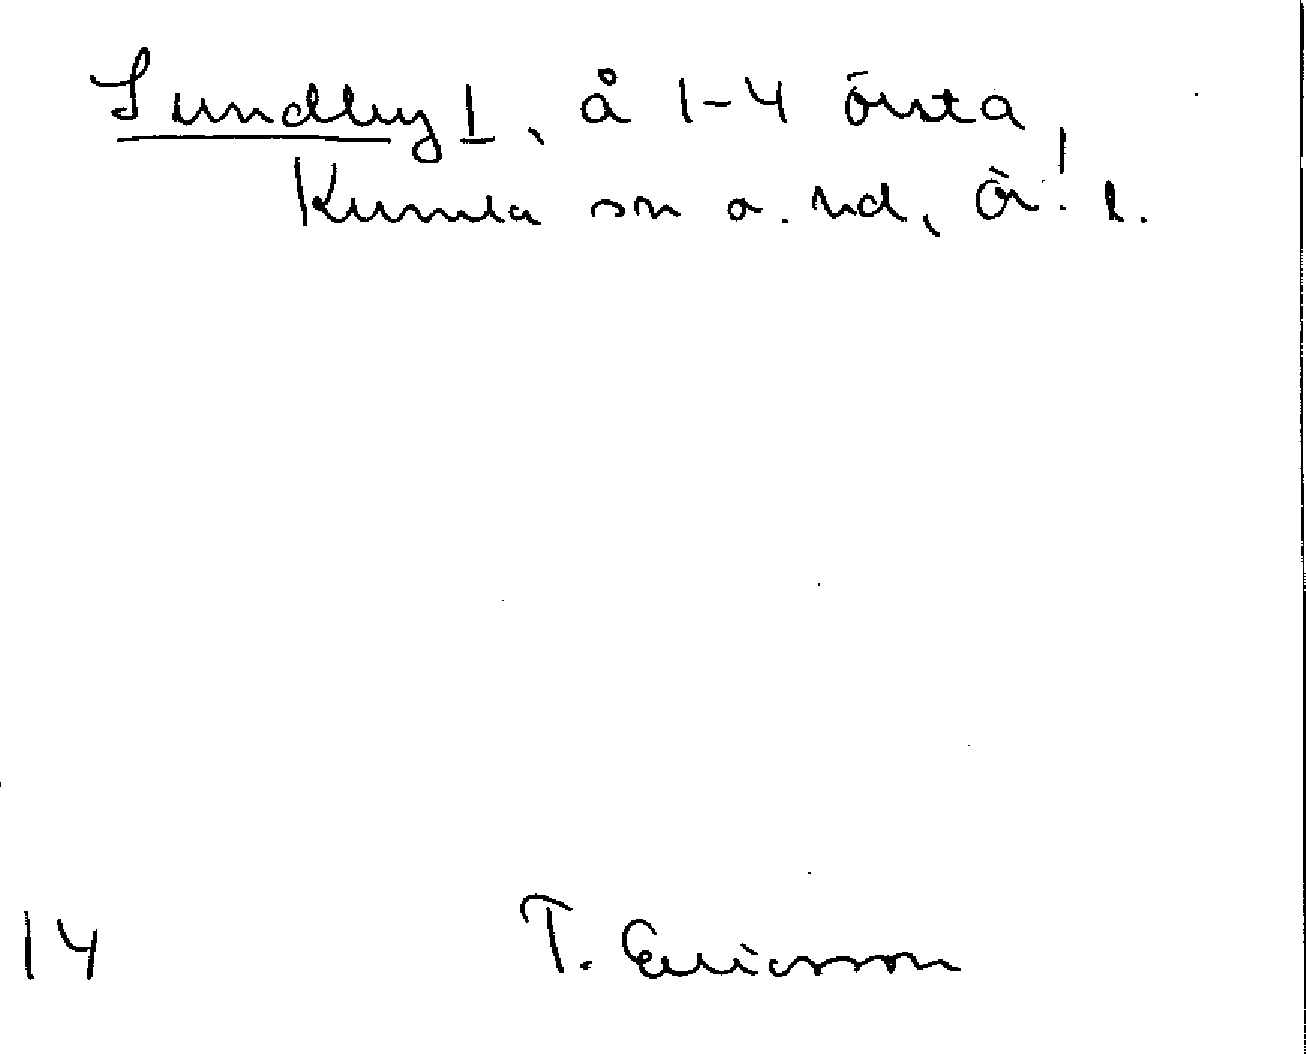 Sundby 1, å 1-4 Örsta,
Kumla sn o. hd, Ör. l.
14
T. Ericsson